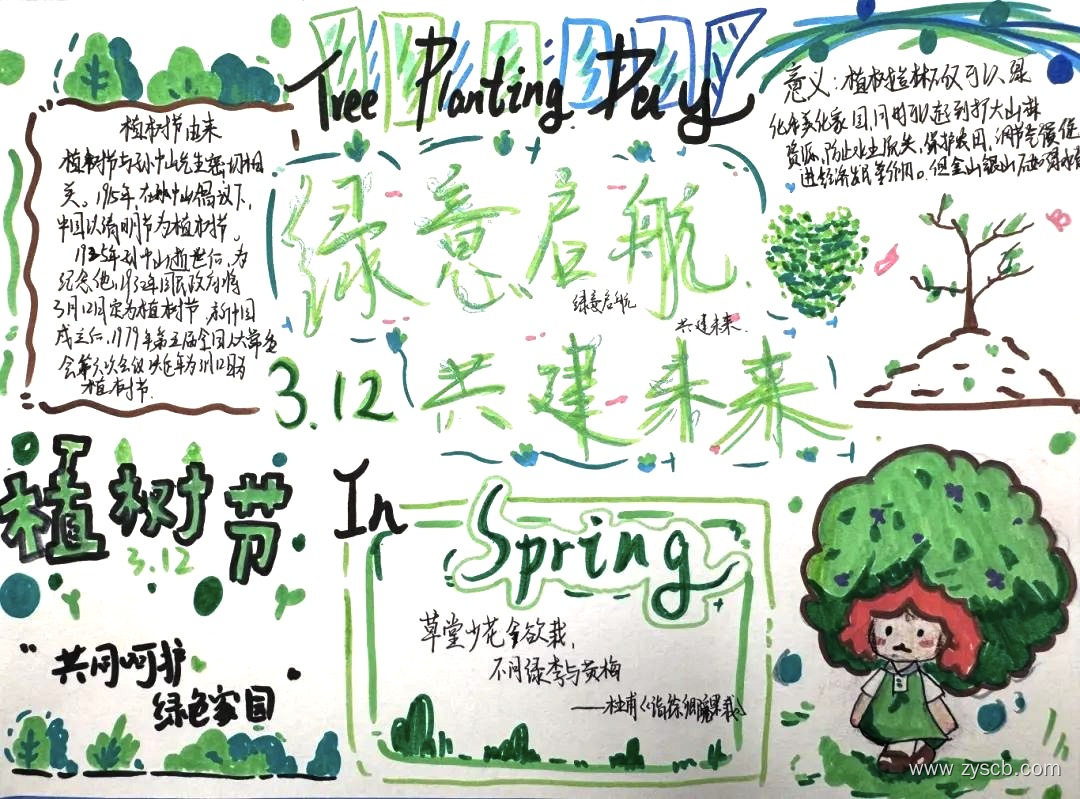 Tree Planting Day
植树节由来
植树节与孙中山先生密切相
关。1915年,在孙中山倡议下,
中国以清明节为植树节。
1925年孙中山逝世后,为
纪念他,1932年国民政府将
3月12日定为植树节。新中国
成立后,1979年第五届全国人大常委
会第六次会议决定每年为3月12日为
植树节.
意义:植树造林不仅可以绿
化和美化家园,同时可以起到扩大山林
资源,防止水土流失,保护农田,调节气候,促
进经济发展等作用。但金山银山
绿意启航
绿意启航
共建未来.
3.12 共建未来
植树节
3.12
"共同呵护
绿色家园"
In Spring
草堂少花今欲栽,
不问绿李与黄梅
——杜甫《诣徐卿觅果栽》
www.zyscb.com